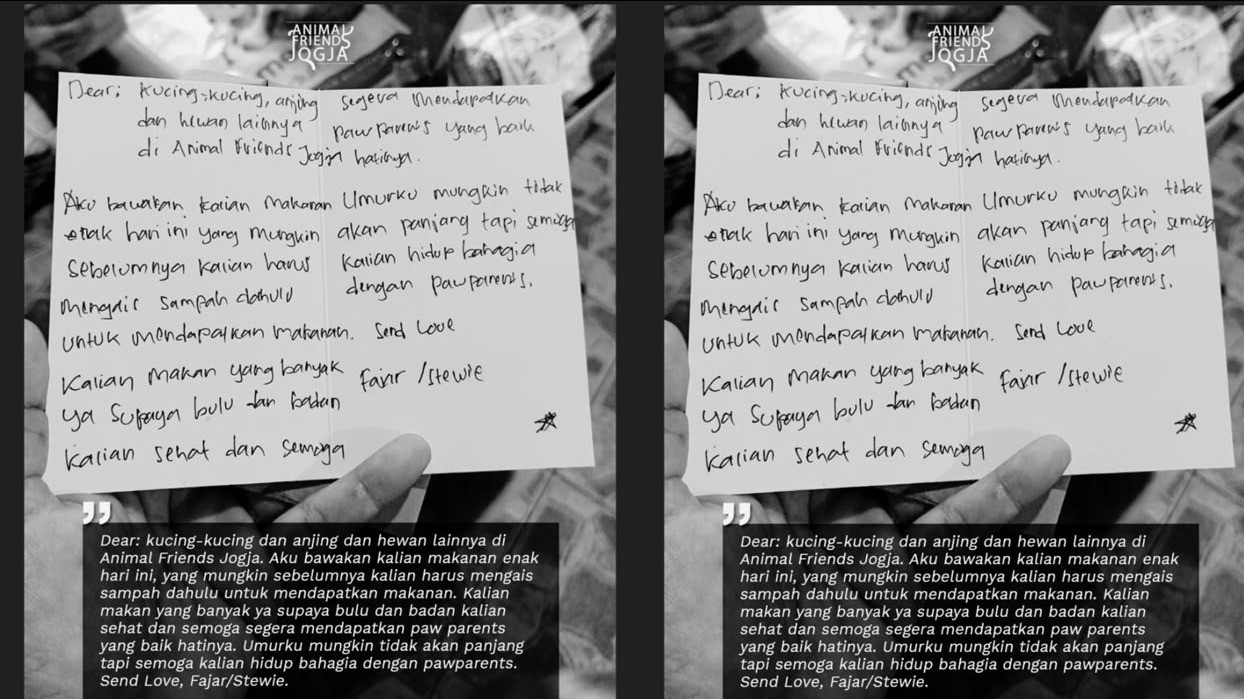 ANIMAL
FRIENDS
JOGJA
Dear: kucing-kucing, anjing
dan hewan lainnya
di Animal Friends Jogja
Aku bawakan kalian makanan
enak hari ini yang mungkin
sebelumnya kalian harus
mengais sampah dahulu
untuk mendapatkan makanan.
Kalian makan yang banyak
ya supaya bulu dan badan
kalian sehat dan semoga
segera mendapatkan
pawparents yang baik
hatinya.
Umurku mungkin tidak
akan panjang tapi semoga
kalian hidup bahagia
dengan pawparents.
Send Love
Fajar /Stewie
Dear: kucing-kucing dan anjing dan hewan lainnya di
Animal Friends Jogja. Aku bawakan kalian makanan enak
hari ini, yang mungkin sebelumnya kalian harus mengais
sampah dahulu untuk mendapatkan makanan. Kalian
makan yang banyak ya supaya bulu dan badan kalian
sehat dan semoga segera mendapatkan paw parents
yang baik hatinya. Umurku mungkin tidak akan panjang
tapi semoga kalian hidup bahagia dengan pawparents.
Send Love, Fajar/Stewie.
ANIMAL
FRIENDS
JOGJA
Dear: kucing-kucing, anjing
dan hewan lainnya
di Animal Friends Jogja
Aku bawakan kalian makanan
enak hari ini yang mungkin
sebelumnya kalian harus
mengais sampah dahulu
untuk mendapatkan makanan.
Kalian makan yang banyak
ya supaya bulu dan badan
kalian sehat dan semoga
segera mendapatkan
pawparents yang baik
hatinya.
Umurku mungkin tidak
akan panjang tapi semoga
kalian hidup bahagia
dengan pawparents.
Send Love
Fajar /Stewie
Dear: kucing-kucing dan anjing dan hewan lainnya di
Animal Friends Jogja. Aku bawakan kalian makanan enak
hari ini, yang mungkin sebelumnya kalian harus mengais
sampah dahulu untuk mendapatkan makanan. Kalian
makan yang banyak ya supaya bulu dan badan kalian
sehat dan semoga segera mendapatkan paw parents
yang baik hatinya. Umurku mungkin tidak akan panjang
tapi semoga kalian hidup bahagia dengan pawparents.
Send Love, Fajar/Stewie.